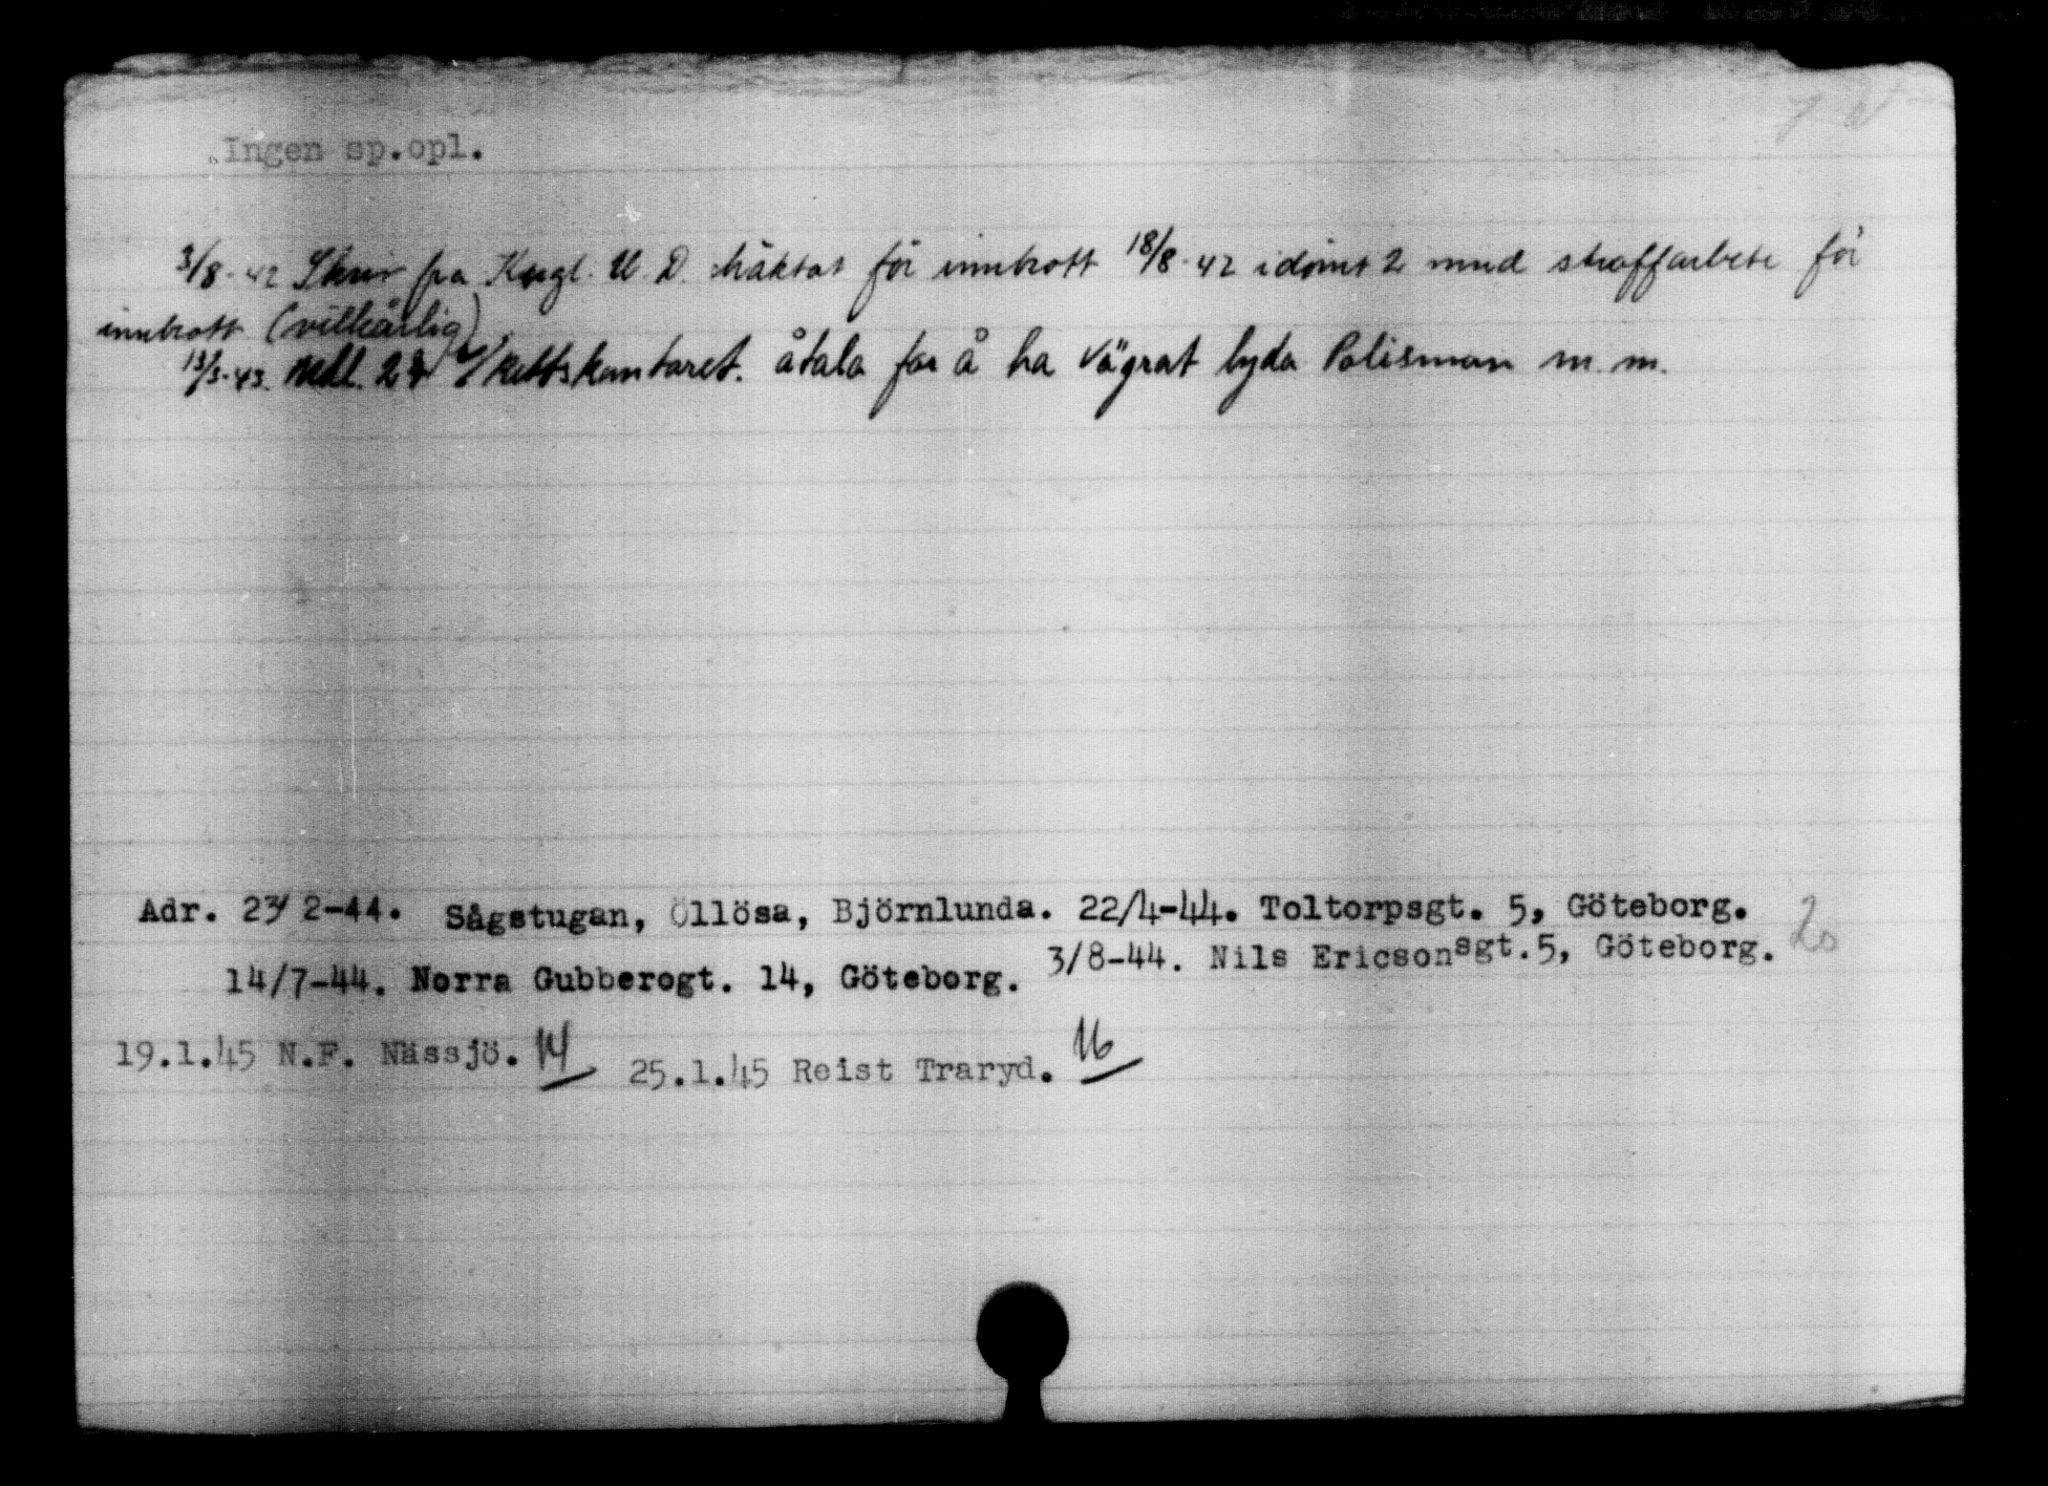 Ingen sp.opl.
3/8-42 Skriv fra Kngl. U.D. häktat för innbrott 18/8-42 idömt 2 mnd straffarbete för
innbrott (vilkårlig)
13/3-43. Medl. Rettskontoret. åtala for å ha vägrat lyda Polisman m.m.
Adr. 23/2-44. Sågstugan, Öllösa, Björnlunda. 22/4-44. Toltorpsgt. 5, Göteborg.
14/7-44. Norra Gubberogt. 14, Göteborg. 3/8-44. Nils Ericsonsgt.5, Göteborg. 20
19.1.45 N.F. Nässjö. 14 25.1.45 Reist Traryd. 16